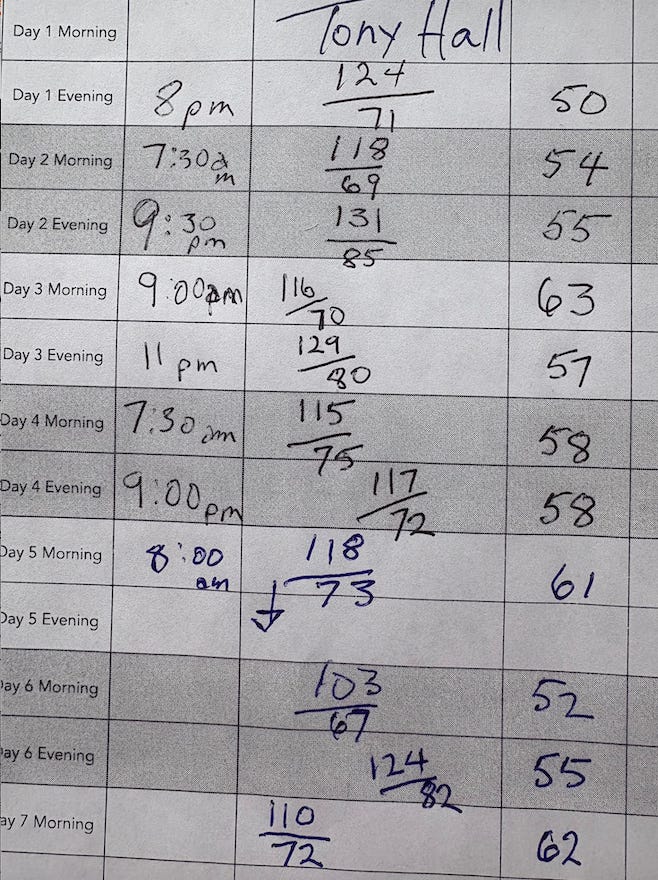 Day 1 Morning Tony Hall
Day 1 Evening 8pm 124/71 50
Day 2 Morning 7:30am 118/69 54
Day 2 Evening 9:30pm 131/85 55
Day 3 Morning 9:00am 116/70 63
Day 3 Evening 11pm 129/80 57
Day 4 Morning 7:30am 115/75 58
Day 4 Evening 9:00pm 117/72 58
Day 5 Morning 8:00am 118/73 61
Day 5 Evening
ay 6 Morning 103/67 52
ay 6 Evening 124/82 55
ay 7 Morning 110/72 62